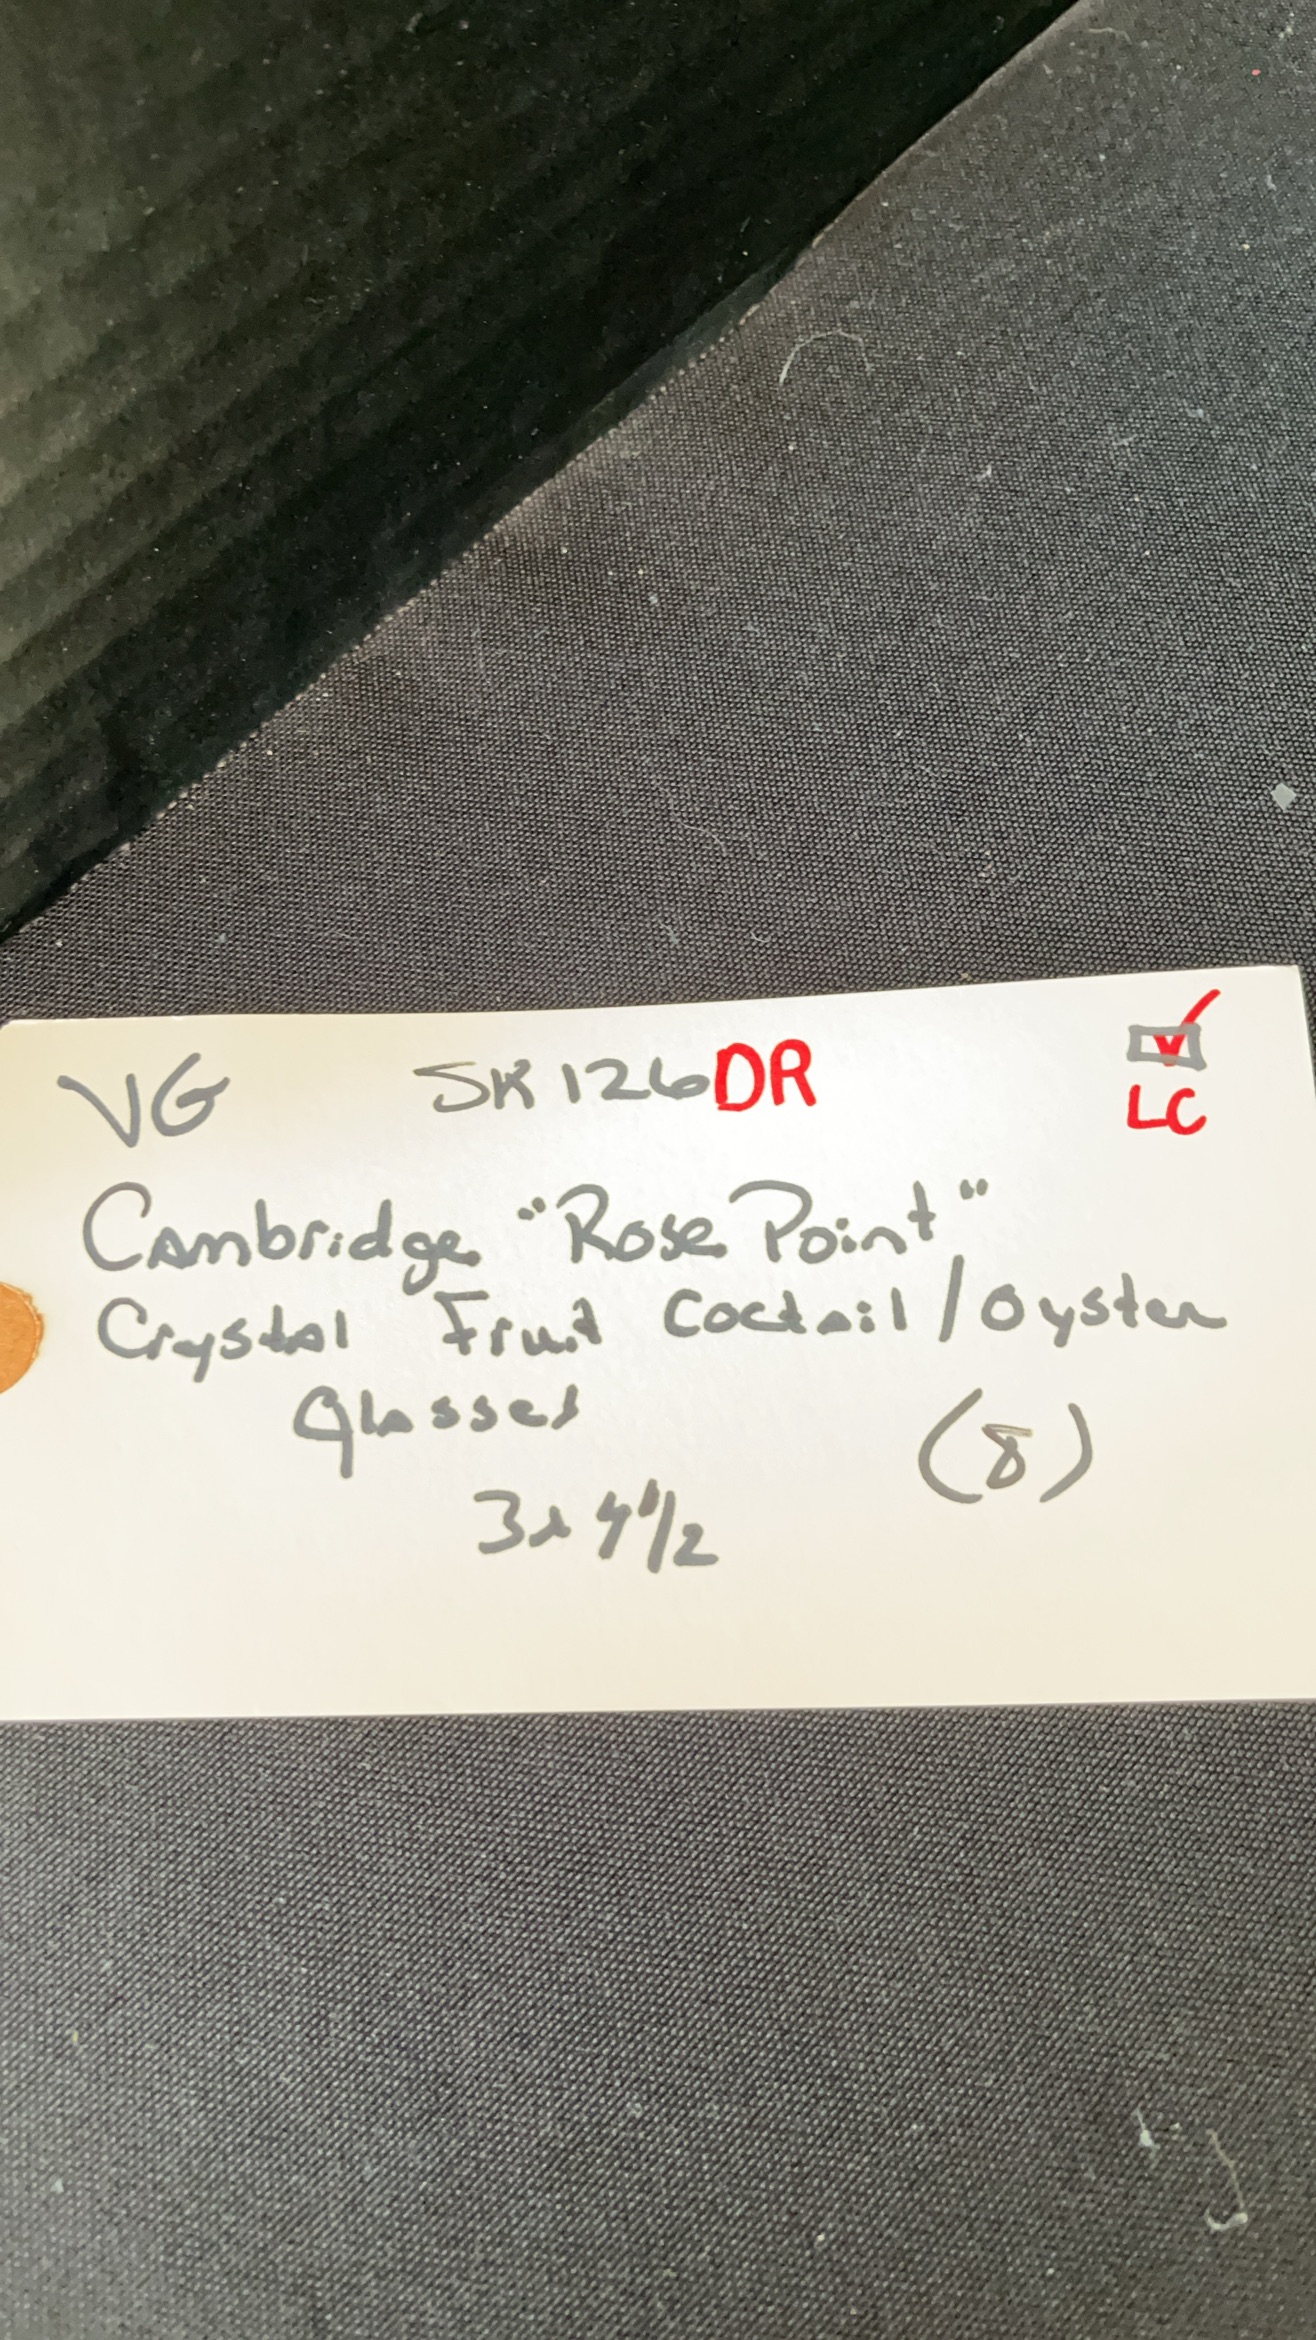 VG SK126DR ☑
LC
Cambridge "Rose Point"
Crystal Fruit Coctail/Oyster
Glasses (8)
3x4 1/2